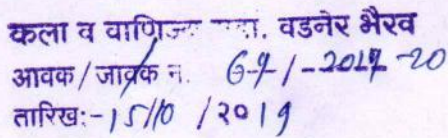 कला व वाणिज्य महा. वडनेर भैरव
आवक/जावक न. 67/-2019-20
तारिख:-15/10/2019